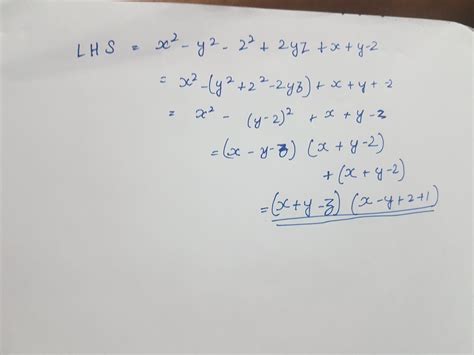 LHS = x² - y² - 2² + 2yz + x + y - 2
= x² - (y² + 2² - 2yz) + x + y + -2
= x² - (y-2)² + x + y - z
= (x - y - z) (x + y - 2)
+ (x + y - 2)
= (x + y - z) (x - y + 2 + 1)